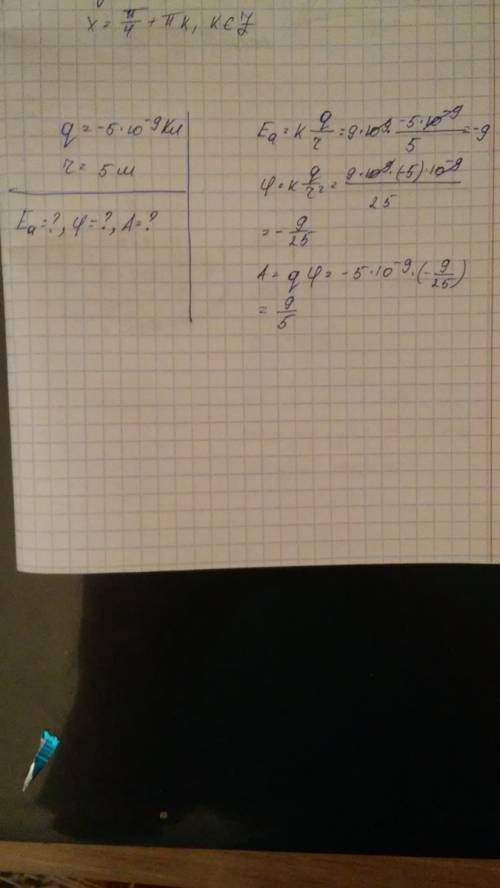 x = π/4 + πk, k ∈ Z
q = -5·10⁻⁹ Кл
r = 5 м
Eₐ = ?, φ = ?, A = ?
Eₐ = k q/r = 9·10⁹·(-5·10⁻⁹)/5 = -9
φ = k q/r² = (9·10⁹·(-5)·10⁻⁹)/25
= -9/25
A = qφ = -5·10⁻⁹·(-9/25)
= 9/5